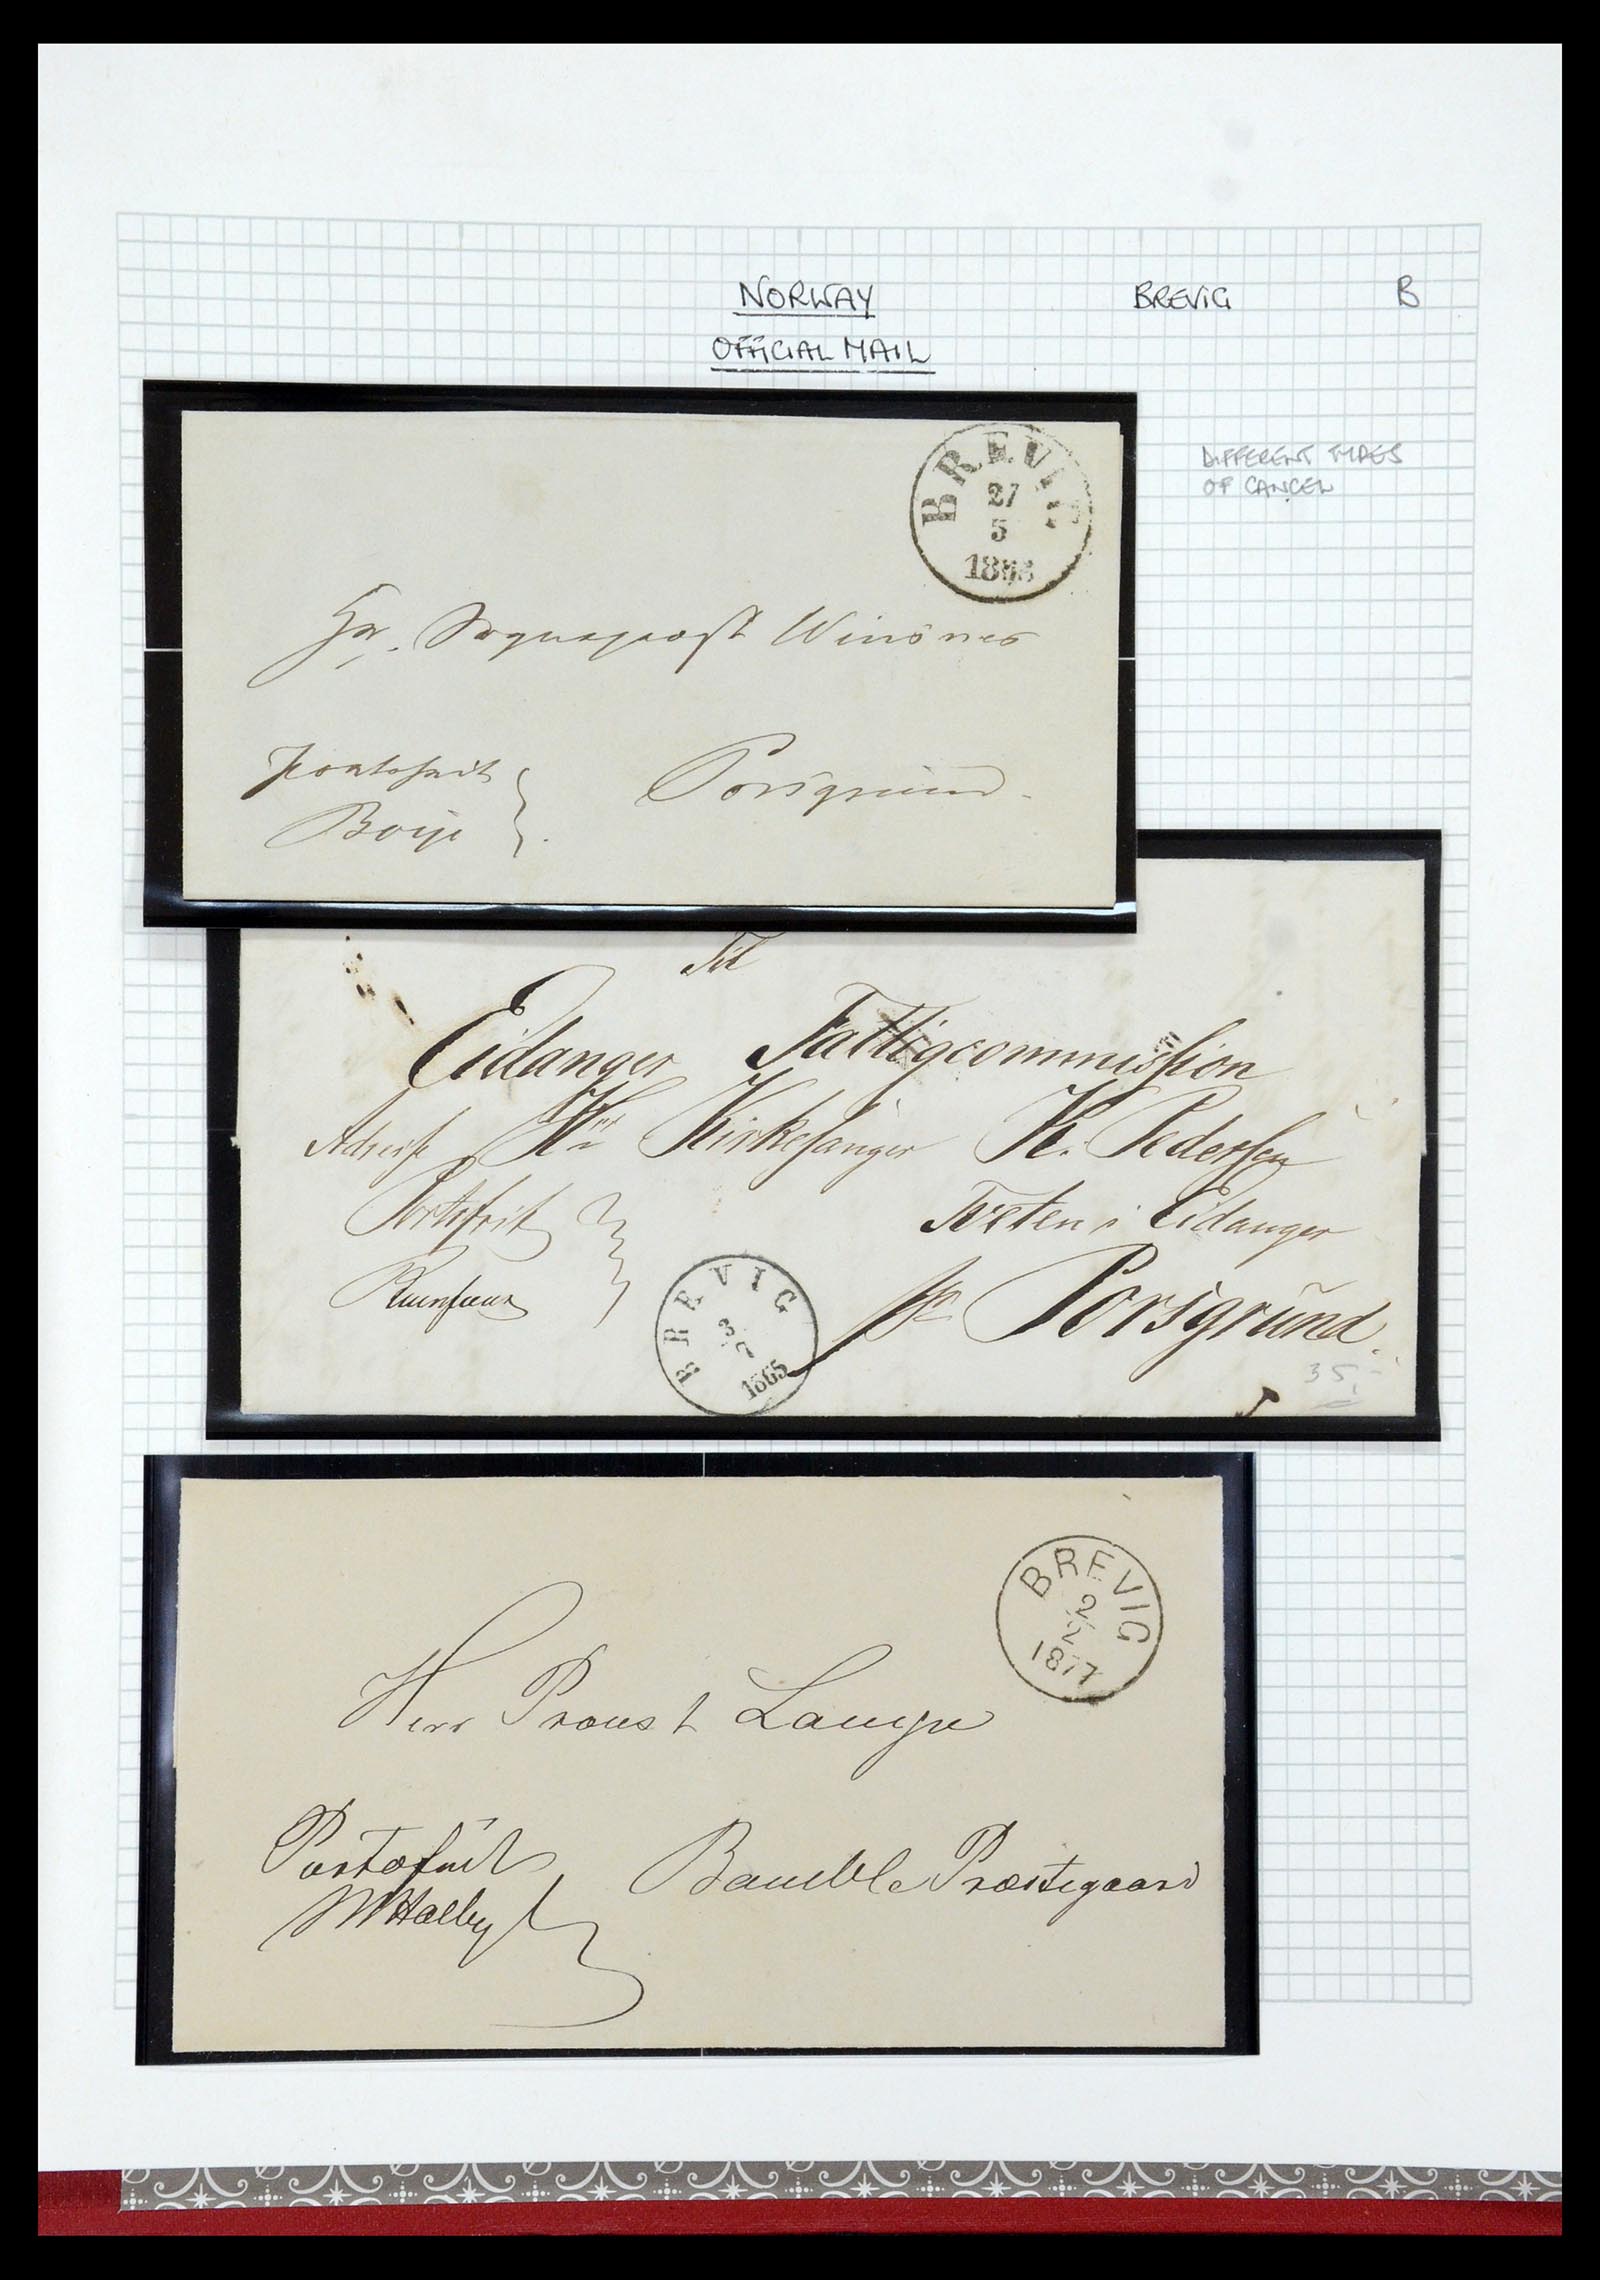 NORWAY
BREVIG
B
OFFICIAL MAIL
DIFFERENT TYPES
OF CANCEL
BREVIG
27
5
Hr. Sognepræst Winsnes
Portofrit
Porsgrund
Til
Eidanger Fattigcommission
Adresse Hr Kirkesanger K. Pedersen
Portofrit
Tveten i Eidanger
BREVIG
3
7
1865
pr Porsgrund.
35,-
BREVIG
2
2
1877
Herr Proust Lampe
Portofrit
Bamble Præstegaard
MHalby